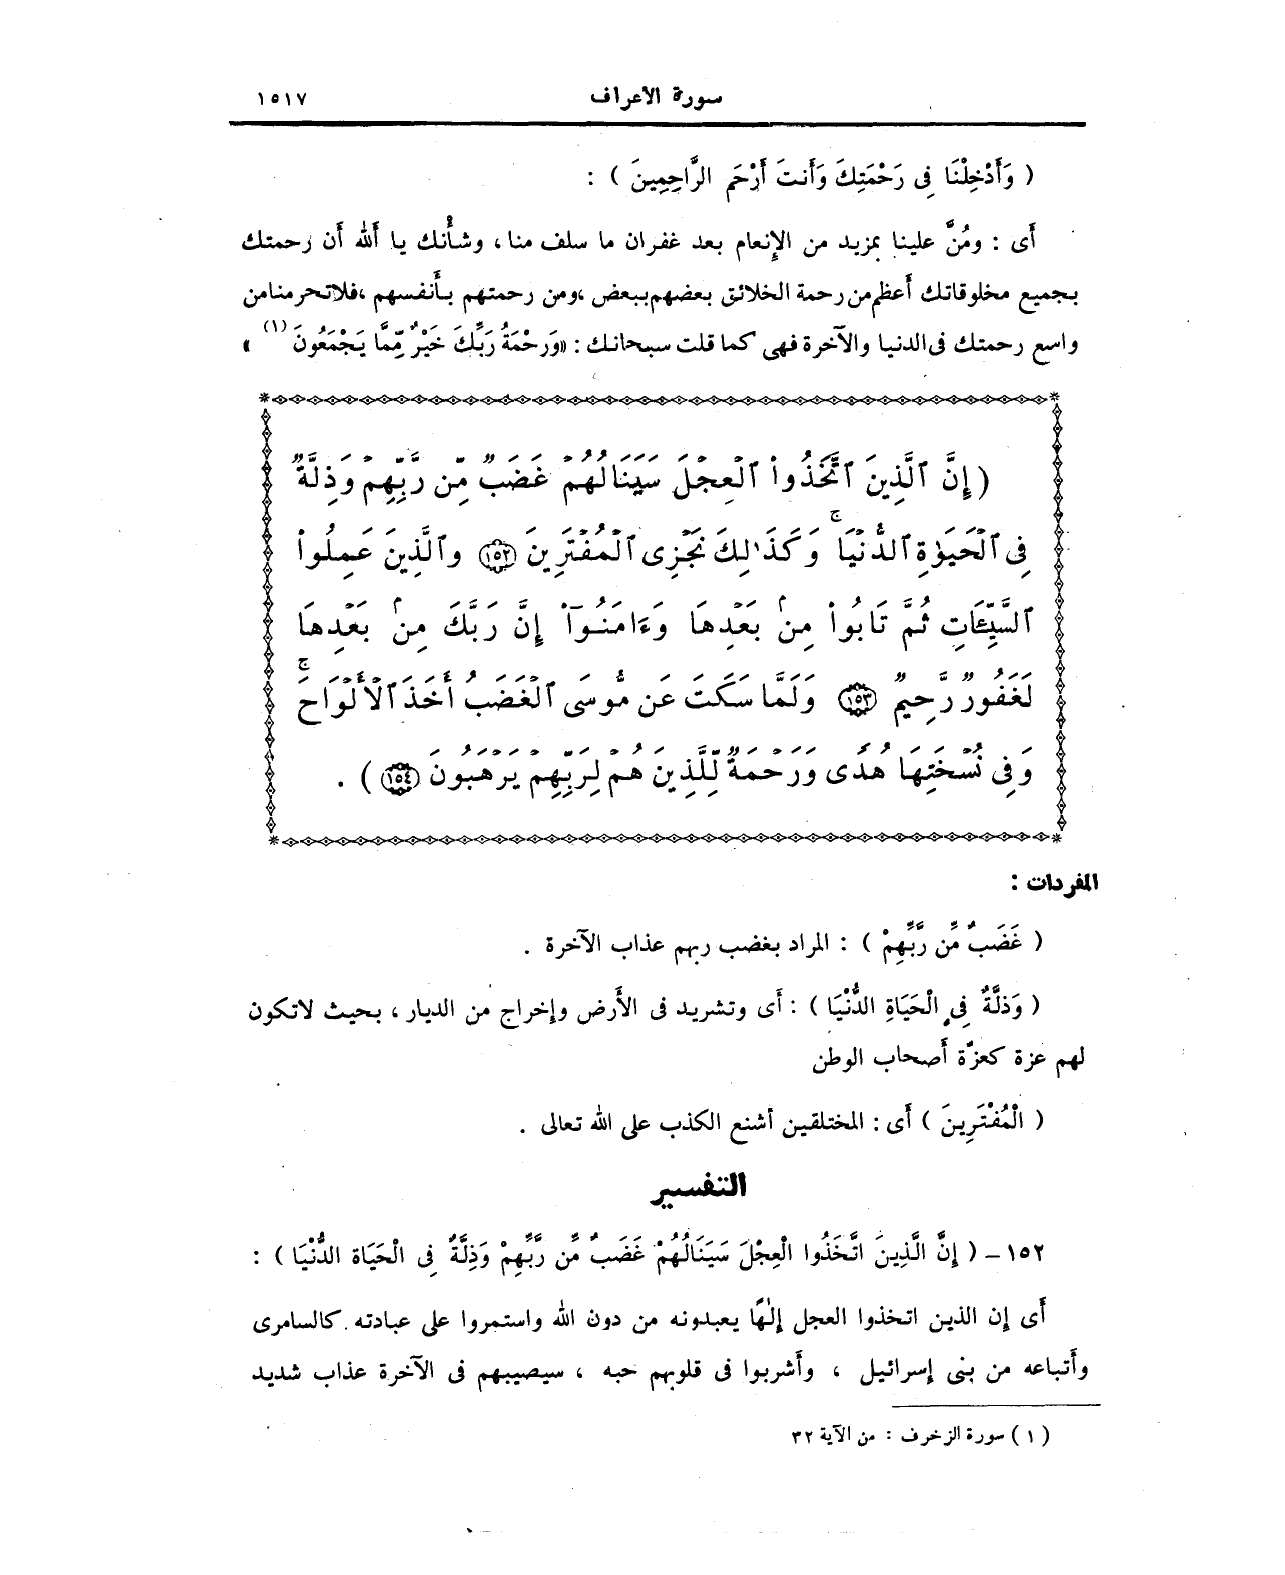 سورة الاعراف ١٥١٧
( وَأَدْخِلْنَا فِى رَحْمَتِكَ وَأَنتَ أَرْحَمُ الرَّاحِمِينَ ) :
أَى : ومُنَّ علينا بمزيد من الإنعام بعد غفران ما سلف منا ، وشأنك يا أَلله أن رحمتك
بجميع مخلوقاتك أعظم من رحمة الخلائق بعضهم ببعض ، ومن رحمتهم بأنفسهم ، فلا تحرمنا من
واسع رحمتك فى الدنيا والآخرة فهى كما قلت سبحانك : «وَرَحْمَةُ رَبِّكَ خَيْرٌ مِّمَّا يَجْمَعُونَ (١) »
( إِنَّ ٱلَّذِينَ ٱتَّخَذُوا۟ ٱلْعِجْلَ سَيَنَالُهُمْ غَضَبٌ مِّن رَّبِّهِمْ وَذِلَّةٌ
فِى ٱلْحَيَوٰةِ ٱلدُّنْيَا ۚ وَكَذَٰلِكَ نَجْزِى ٱلْمُفْتَرِينَ ١٥٢ وَٱلَّذِينَ عَمِلُوا۟
ٱلسَّيِّـَٔاتِ ثُمَّ تَابُوا۟ مِنۢ بَعْدِهَا وَءَامَنُوٓا۟ إِنَّ رَبَّكَ مِنۢ بَعْدِهَا
لَغَفُورٌ رَّحِيمٌ ١٥٣ وَلَمَّا سَكَتَ عَن مُّوسَى ٱلْغَضَبُ أَخَذَ ٱلْأَلْوَاحَ ۖ
وَفِى نُسْخَتِهَا هُدًى وَرَحْمَةٌ لِّلَّذِينَ هُمْ لِرَبِّهِمْ يَرْهَبُونَ ١٥٤ ) .
المفردات :
( غَضَبٌ مِّن رَّبِّهِمْ ) : المراد بغضب ربهم عذاب الآخرة .
( وَذِلَّةٌ فِى الْحَيَاةِ الدُّنْيَا ) : أَى وتشريد فى الأَرض وإخراج من الديار ، بحيث لا تكون
لهم عزة كعزَّة أَصحاب الوطن
( الْمُفْتَرِينَ ) أَى : المختلقين أشنع الكذب على الله تعالى .
التفسير
١٥٢ – ( إِنَّ الَّذِينَ اتَّخَذُوا الْعِجْلَ سَيَنَالُهُمْ غَضَبٌ مِّن رَّبِّهِمْ وَذِلَّةٌ فِى الْحَيَاة الدُّنْيَا ) :
أَى إن الذين اتخذوا العجل إلٰهًا يعبدونه من دون الله واستمروا على عبادته . كالسامرى
وأَتباعه من بنى إسرائيل ، وأُشربوا فى قلوبهم حبه ، سيصيبهم فى الآخرة عذاب شديد
( ١ ) سورة الزخرف : من الآية ٣٢